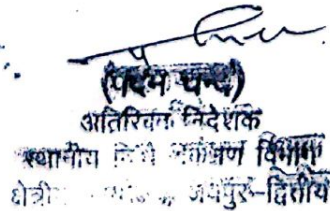 (पदम चन्द)
अतिरिक्त निदेशक
स्थानीय निधि अंकेक्षण विभाग
जयपुर-द्वितीय